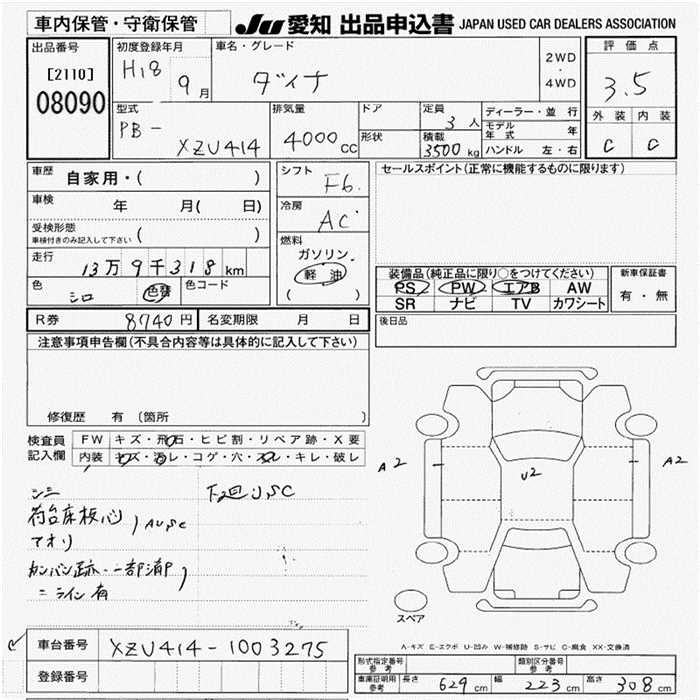 車内保管・守衛保管
JU 愛知 出品申込書 JAPAN USED CAR DEALERS ASSOCIATION
出品番号
[2110]
08090
初度登録年月
H18 9月
車名・グレード
ダイナ
2WD
・
4WD
評価点
3.5
外装 内装
C C
型式
PB-
XZU414
排気量
4000cc
ドア
形状
定員 3人
積載 3500kg
ディーラー・並行
モデル年式 年
ハンドル 左・右
車歴 自家用・( )
車検 年 月( 日)
受検形態
車検付きのみ記入して下さい ( )
走行 13万9千318km
色 シロ 色替 色コード
シフト F6.
冷房 AC
燃料
ガソリン
軽油
( )
セールスポイント(正常に機能するものに限ります)
装備品(純正品に限り○をつけてください)
PS PW エアB AW
SR ナビ TV カワシート
新車保証書
有・無
後日品
R券 8740円 名変期限 月 日
注意事項申告欄(不具合内容等は具体的に記入して下さい)
修復歴 有(箇所 )
検査員
記入欄
FW キズ・飛石・ヒビ割・リペア跡・X要
内装 キズ・汚レ・コゲ・穴・スレ・キレ・破レ
シミ
下回りSC
荷台床板心
アオリ
AUSC
カンバン跡・一部消却
ライン有
A2
U2
A2
スペア
A-キズ E-エクボ U-凹み W-補修跡 S-サビ C-腐食 XX-交換済
車台番号 XZU414-1003275
登録番号
形式指定番号
参考
類別区分番号
参考
車庫証明用
参考
長さ 629cm 幅 223cm 高さ 308cm